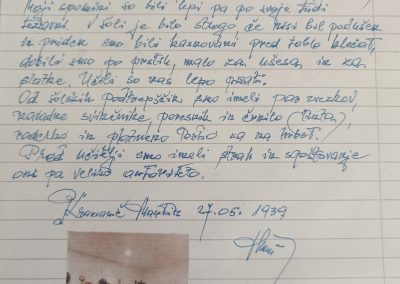 Moji spomini so bili lepi pa po svoje tudi
težavni. V šoli je bilo strogo če nisi bil poslušen
in priden smo bili kaznovani pred tablo klečat,
dobili smo po prstih, malo za ušesa, in za
slatke. Učili so nas lepo pisati.
Od šolskih potrepščin smo imeli par zvezkov,
navadne svinčnike peresnik in črnilo (tinta),
raderko in platneno torbo za na hrbet.
Pred učitelji smo imeli strah in spoštovanje
oni pa veliko avtoriteto.
27.05. 1939